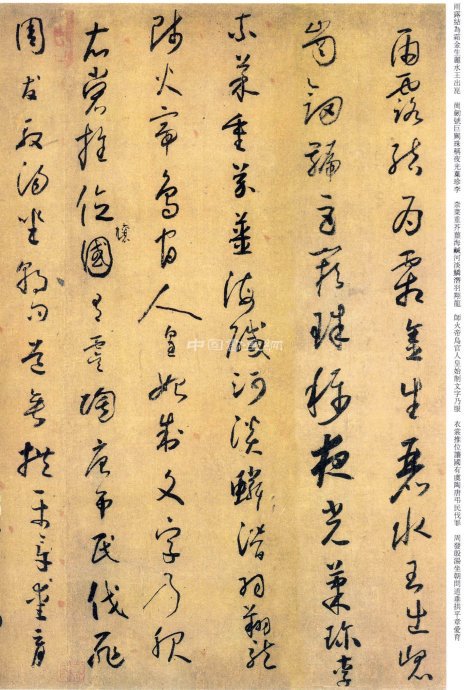 雨露結為霜金生麗水玉出崑　崗劍號巨闕珠稱夜光菓珍李　柰菜重芥薑海鹹河淡鱗潛羽翔龍　師火帝鳥官人皇始制文字乃服　衣裳推位讓國有虞陶唐弔民伐罪　周發殷湯坐朝問道垂拱平章愛育
雨露結為霜金生麗水玉出崑
崗劍號巨闕珠稱夜光菓珍李
柰菜重芥薑海鹹河淡鱗潛羽翔龍
師火帝鳥官人皇始制文字乃服
衣裳推位讓國有虞陶唐弔民伐罪
周發殷湯坐朝問道垂拱平章愛育